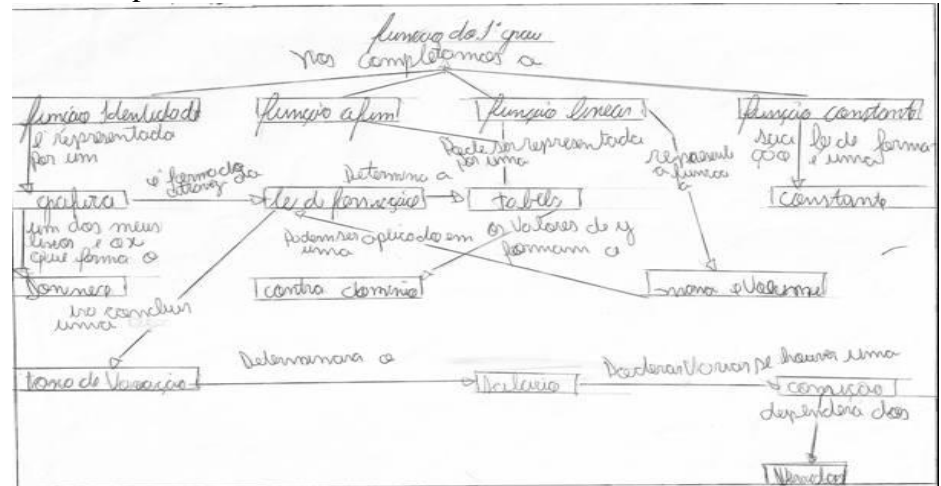 função do 1º grau
nos completamos a
função Identidade
função afim
função linear
função constante
é representada
por um
Pode ser representada
por uma
representa
a função
a
sua lei de forma
ção é uma
gráfico
é formado
atravez da
lei de formação
Determina a
tabela
constante
um dos meus
eixos e o x
que forma o
Podem ser aplicado em
uma
os Valores de y
formam o
Dominio
contra dominio
massa e Volume
ira concluir
uma
taxa de Variação
Determinara o
Salario
Poderar Variar se houver uma
comição
dependera das
Vendas